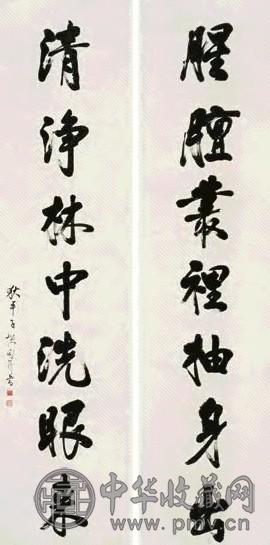 腥膻叢裡抽身出
清淨林中洗眼來
狄平子
中华收藏网